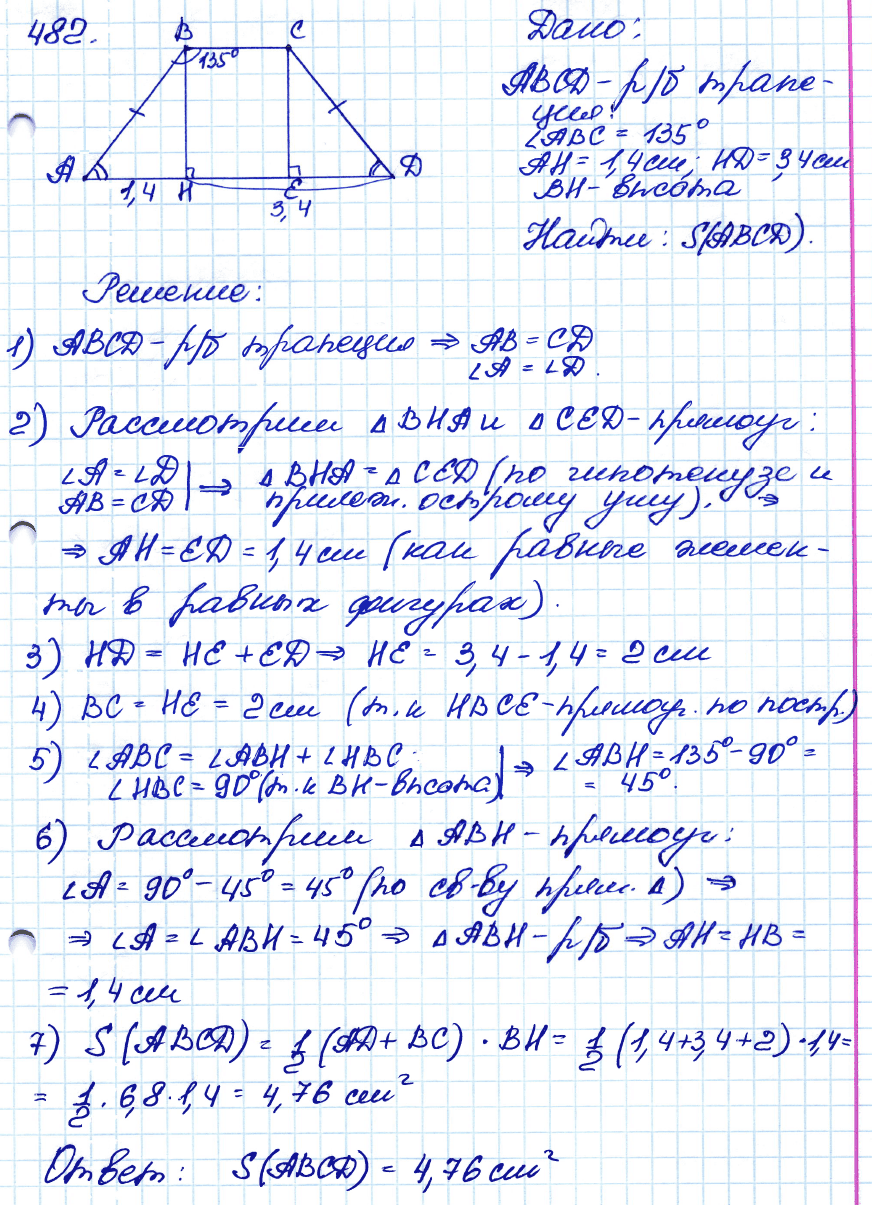 482.
B C
135°
A 1,4 H E D
3,4
Дано:
ABCD - р/б трапе-
ция.
∠ABC = 135°
AH = 1,4 см; HD = 3,4 см
BH - высота
Найти: S(ABCD).
Решение:
1) ABCD - р/б трапеция ⇒ AB = CD
∠A = ∠D.
2) Рассмотрим ΔBHA и ΔCED - прямоуг:
∠A = ∠D
AB = CD | ⇒ ΔBHA = ΔCED (по гипотенузе и
прилеж. острому углу). ⇒
⇒ AH = ED = 1,4 см (как равные элемен-
ты в равных фигурах).
3) HD = HE + ED ⇒ HE = 3,4 - 1,4 = 2 см
4) BC = HE = 2 см (т.к HBCE - прямоуг. по постр.)
5) ∠ABC = ∠ABH + ∠HBC.
∠HBC = 90° (т.к BH - высота) | ⇒ ∠ABH = 135° - 90° =
= 45°.
6) Рассмотрим ΔABH - прямоуг:
∠A = 90° - 45° = 45° (по св-ву прям. Δ) ⇒
⇒ ∠A = ∠ABH = 45° ⇒ ΔABH - р/б ⇒ AH = HB =
= 1,4 см
7) S(ABCD) = 1/2 (AD + BC) · BH = 1/2 (1,4 + 3,4 + 2) · 1,4 =
= 1/2 · 6,8 · 1,4 = 4,76 см²
Ответ: S(ABCD) = 4,76 см²